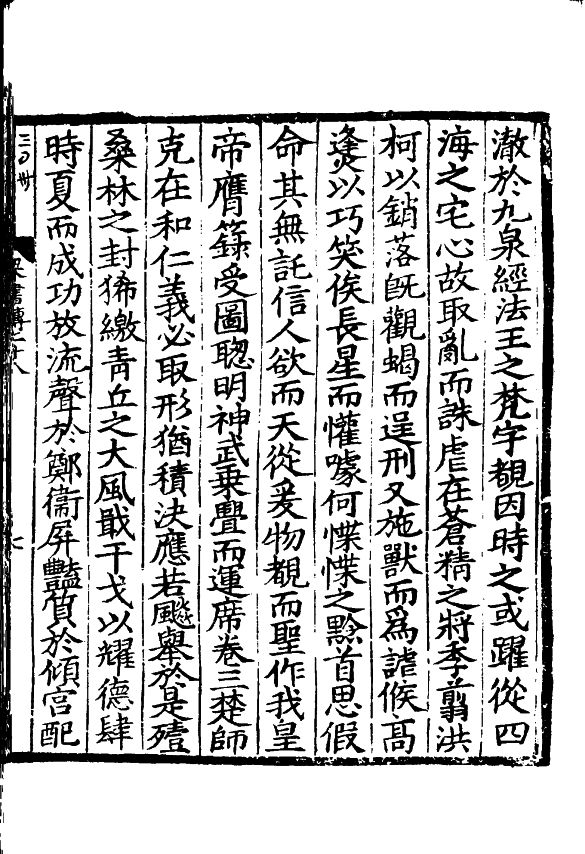 澈於九泉經法王之梵宇覩因時之或躍從四
海之宅心故取亂而誅虐在蒼精之將季翦洪
柯以銷落既觀蝎而逞刑又施獸而為謔候高
㷭以巧笑俟長星而懽噱何惵惵之黔首思假
命其無託信人欲而天從爰物覩而聖作我皇
帝膺籙受圖聰明神武乗舋而運席卷三楚師
克在和仁義必取形猶積決應若飈舉於是殪
桑林之封狶繳青丘之大風戢干戈以耀德肆
時夏而成功放流聲於鄭衞屏豔質於傾宮配
梁書傳二十八
七